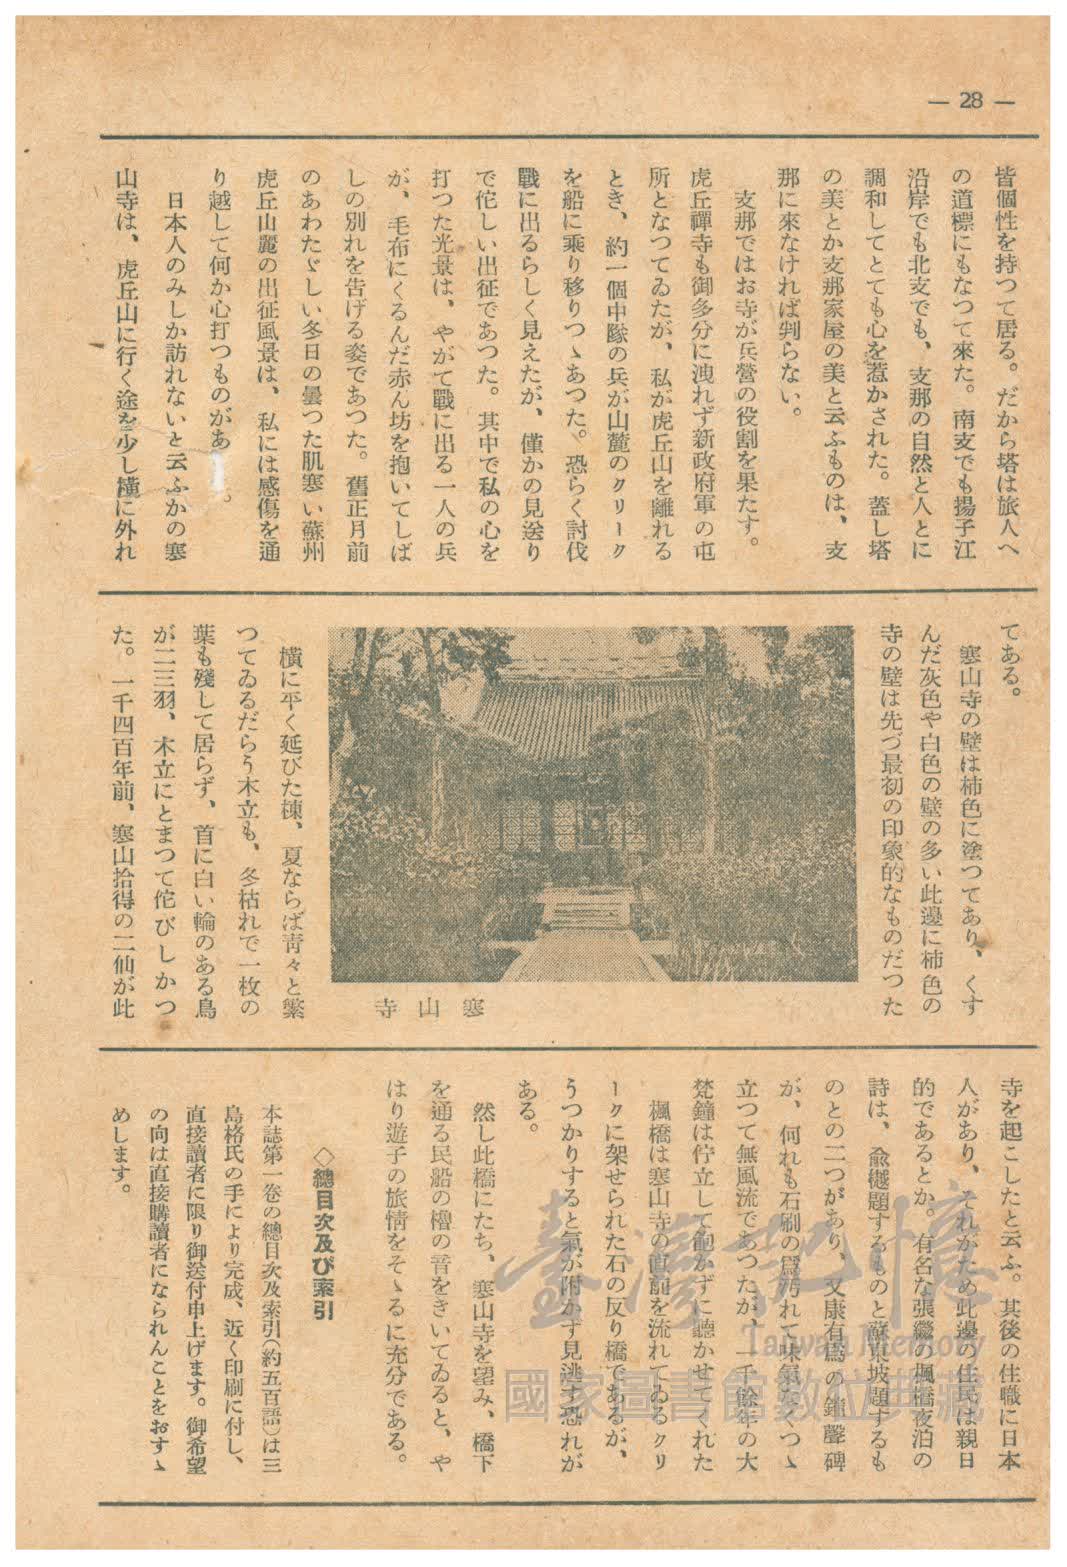 — 28 —
皆個性を持つて居る。だから塔は旅人へ
の道標にもなつて來た。南支でも揚子江
沿岸でも北支でも、支那の自然と人とに
調和してとても心を惹かされた。蓋し塔
の美とか支那家屋の美と云ふものは、支
那に來なければ判らない。
支那ではお寺が兵營の役割を果たす。
虎丘禪寺も御多分に洩れず新政府軍の屯
所となつてゐたが、私が虎丘山を離れる
とき、約一個中隊の兵が山麓のクリーク
を船に乘り移りつゝあつた。恐らく討伐
戰に出るらしく見えたが、僅かの見送り
で佗しい出征であつた。其中で私の心を
打つた光景は、やがて戰に出る一人の兵
が、毛布にくるんだ赤ん坊を抱いてしば
しの別れを告げる姿であつた。舊正月前
のあわたゞしい冬日の曇つた肌寒い蘇州
虎丘山麗の出征風景は、私には感傷を通
り越して何か心打つものがあ。
日本人のみしか訪れないと云ふかの寒
山寺は、虎丘山に行く途を少し橫に外れ
てある。
寒山寺の壁は柿色に塗つてあり、くす
んだ灰色や白色の壁の多い此邊に柿色の
寺の壁は先づ最初の印象的なものだつた
寒山寺
橫に平く延びた棟、夏ならば靑々と繁
つてゐるだらう木立も、冬枯れで一枚の
葉も殘して居らず、首に白い輪のある鳥
が二三羽、木立にとまつて佗びしかつ
た。一千四百年前、寒山拾得の二仙が此
寺を起こしたと云ふ。其後の住職に日本
人があり、それがため此邊の住民は親日
的であるとか。有名な張繼の楓橋夜泊の
詩は、兪樾題するものと蘇東坡題するも
のとの二つがあり、又康有爲の鐘聲碑
が、何れも石刷の爲汚れて味氣なくつゝ
立つて無風流であつたが、一千餘年の大
梵鐘は佇立して飽かずに聽かせてくれた
楓橋は寒山寺の直前を流れてゐるクリ
ークに架せられた石の反り橋であるが、
うつかりすると氣が附かず見逃す恐れが
ある。
然し此橋にたち、寒山寺を望み、橋下
を通る民船の櫓の音をきいてゐると、や
はり遊子の旅情をそゝるに充分である。
◇總目次及び索引
本誌第一卷の總目次及索引(約五百語)は三
島格氏の手により完成、近く印刷に付し、
直接讀者に限り御送付申上げます。御希望
の向は直接購讀者になられんことをおすゝ
めします。
臺灣記憶
Taiwan Memory
國家圖書館數位典藏